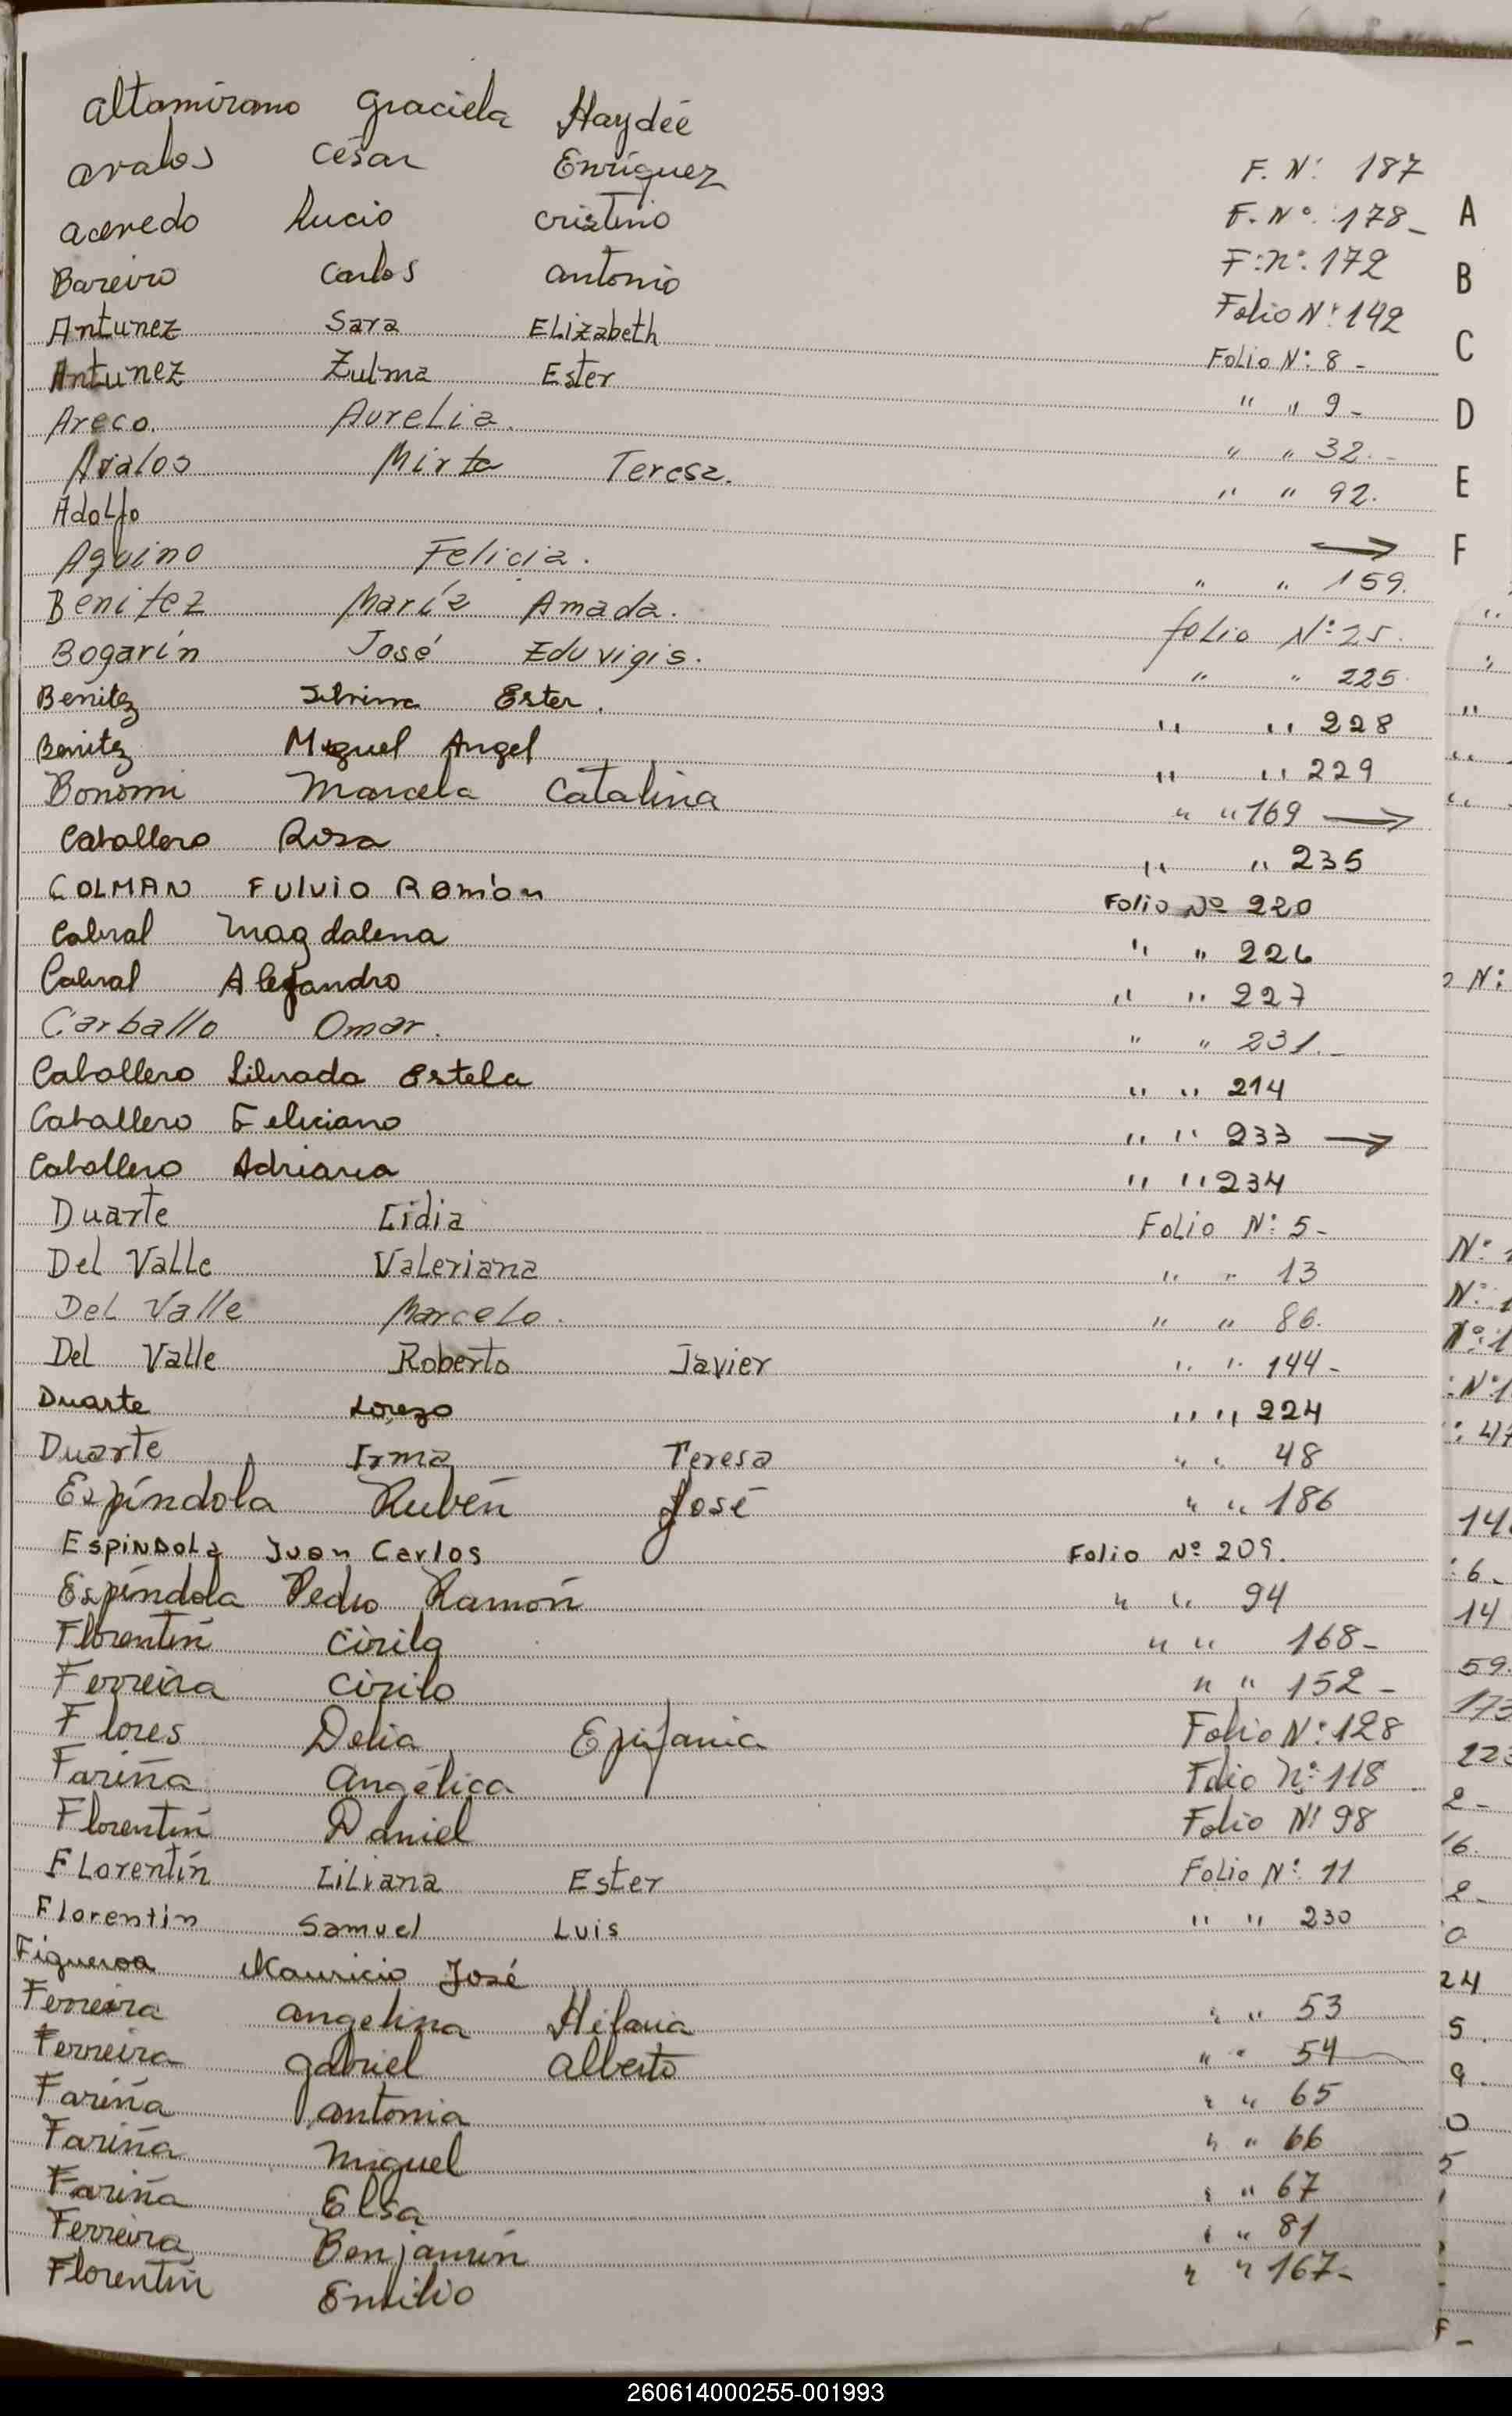 Altamirano Graciela Haydée F. N: 187
Avalos César Enríquez F. Nº: 178_
Acevedo Lucio Cristino F: nº: 172
Bareiro Carlos Antonio Folio N: 142
Antunez Sara Elizabeth Folio N: 8 -
Antunez Zulma Ester " " 9 -
Areco. Aurelia. " " 32. -
Avalos Mirta Teresa. " " 92.
Adolfo →
Aquino Felicia. " " 159.
Benitez María Amada. folio N: 25.
Bogarín José Eduvigis. " " 225.
Benitez Silvina Ester. " " 228
Benitez Miguel Angel " " 229
Bonomi Marcela Catalina " " 169 →
Caballero Rosa " " 235
COLMAN FULVIO Ramón Folio Nº 220
Cabral Magdalena " " 226
Cabral Alejandro " " 227
Carballo Omar. " " 231. -
Caballero Librada Estela " " 214
Caballero Feliciano " " 233 →
Caballero Adriana " " 234
Duarte Lidia Folio N: 5 -
Del Valle Valeriana " " 13
Del Valle Marcelo. " " 86.
Del Valle Roberto Javier " " 144 -
Duarte Lorezo " " 224
Duarte Irma Teresa " " 48
Espíndola Rubén José " " 186
Espindola Juan Carlos Folio Nº 209.
Espíndola Pedro Ramón " " 94
Florentín Cirila " " 168 -
Ferreira Cirilo " " 152 -
Flores Delia Epifania Folio N: 128
Fariña Angélica Folio Nº: 118
Florentín Daniel Folio N: 98
Florentín Liliana Ester Folio N: 11
Florentin Samuel Luis " " 230
Figueroa Mauricio José
Ferreira Angelina Hilaria " " 53
Ferreira Gabriel Alberto " " 54
Fariña Antonia " " 65
Fariña Miguel " " 66
Fariña Elsa " " 67
Ferreira Benjamín " " 81
Florentín Emilio " " 167 -
A
B
C
D
E
F
260614000255-001993